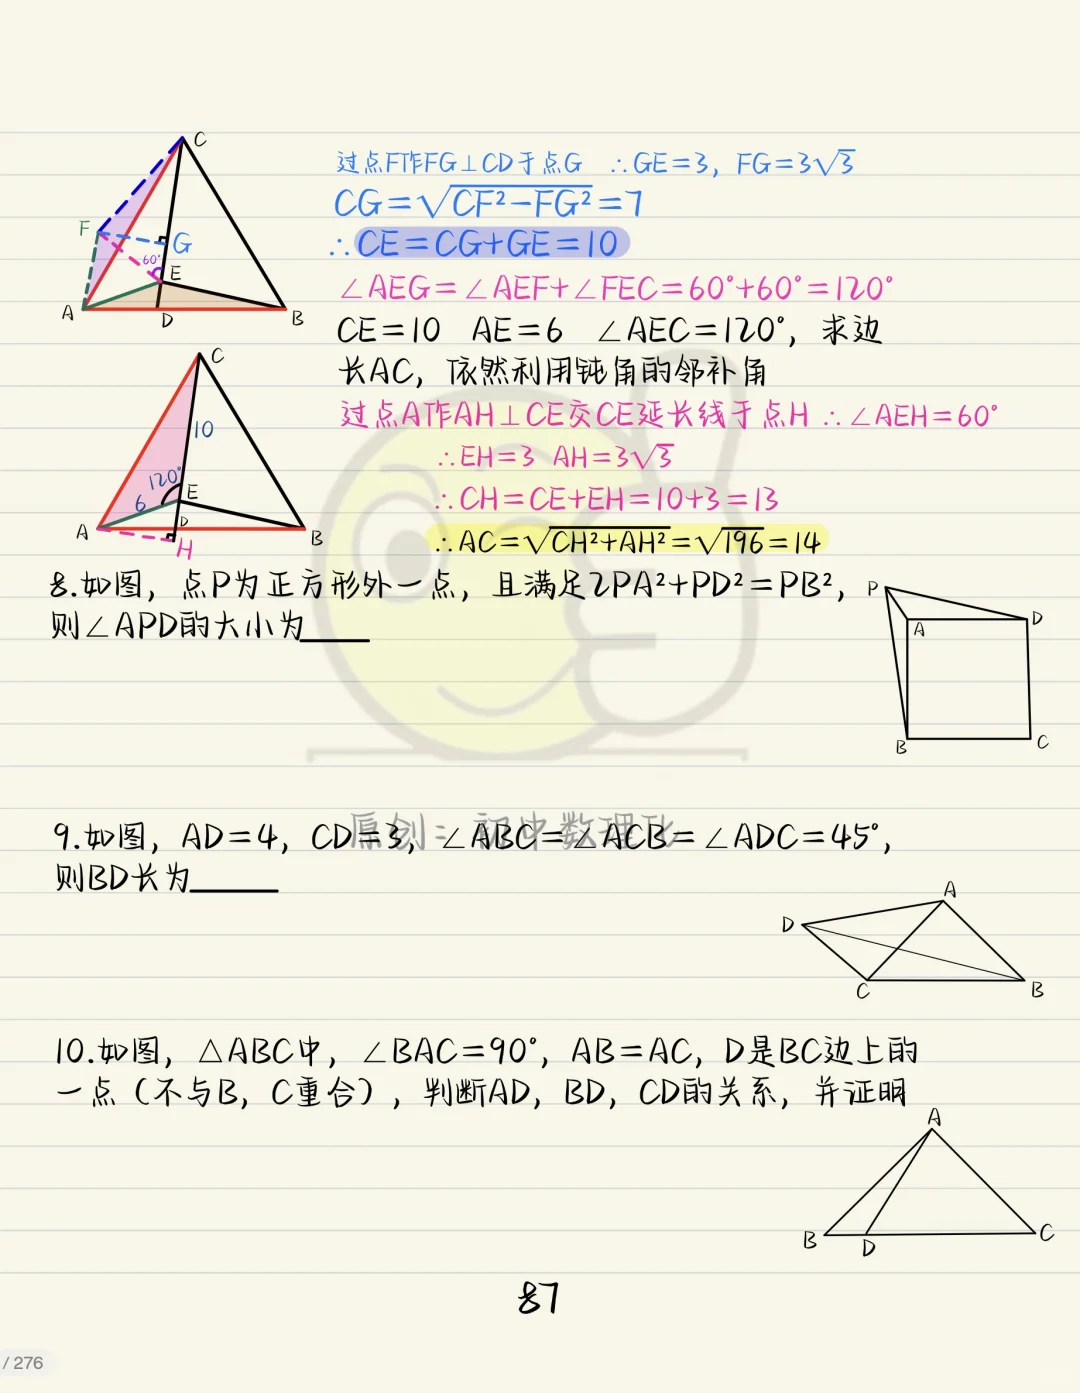 C
F
G
60°
E
A
D
B
过点F作FG⊥CD于点G ∴GE=3, FG=3√3
CG=√CF²-FG²=7
∴CE=CG+GE=10
∠AEG=∠AEF+∠FEC=60°+60°=120°
CE=10 AE=6 ∠AEC=120°, 求边
长AC, 依然利用钝角的邻补角
过点A作AH⊥CE交CE延长线于点H ∴∠AEH=60°
∴EH=3 AH=3√3
∴CH=CE+EH=10+3=13
∴AC=√CH²+AH²=√196=14
C
10
120°
6
E
D
A
B
H
8.如图, 点P为正方形外一点, 且满足2PA²+PD²=PB²,
则∠APD的大小为____
P
A
D
B
C
原创:初中数理化
9.如图, AD=4, CD=3, ∠ABC=∠ACB=∠ADC=45°,
则BD长为____
A
D
C
B
10.如图, △ABC中, ∠BAC=90°, AB=AC, D是BC边上的
一点(不与B, C重合), 判断AD, BD, CD的关系, 并证明
A
B
D
C
87
/ 276